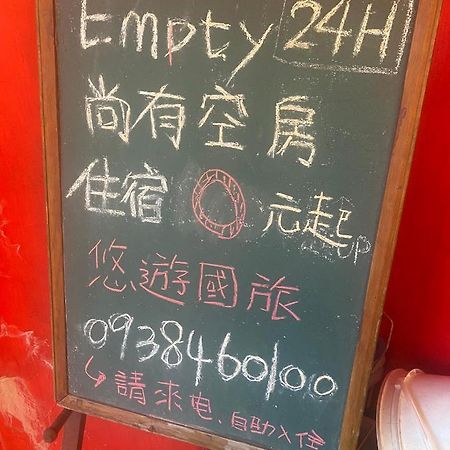 Empty 24H
尚有空房
住宿0元起
UP
悠遊國旅
0938460100
請來电、自助入住